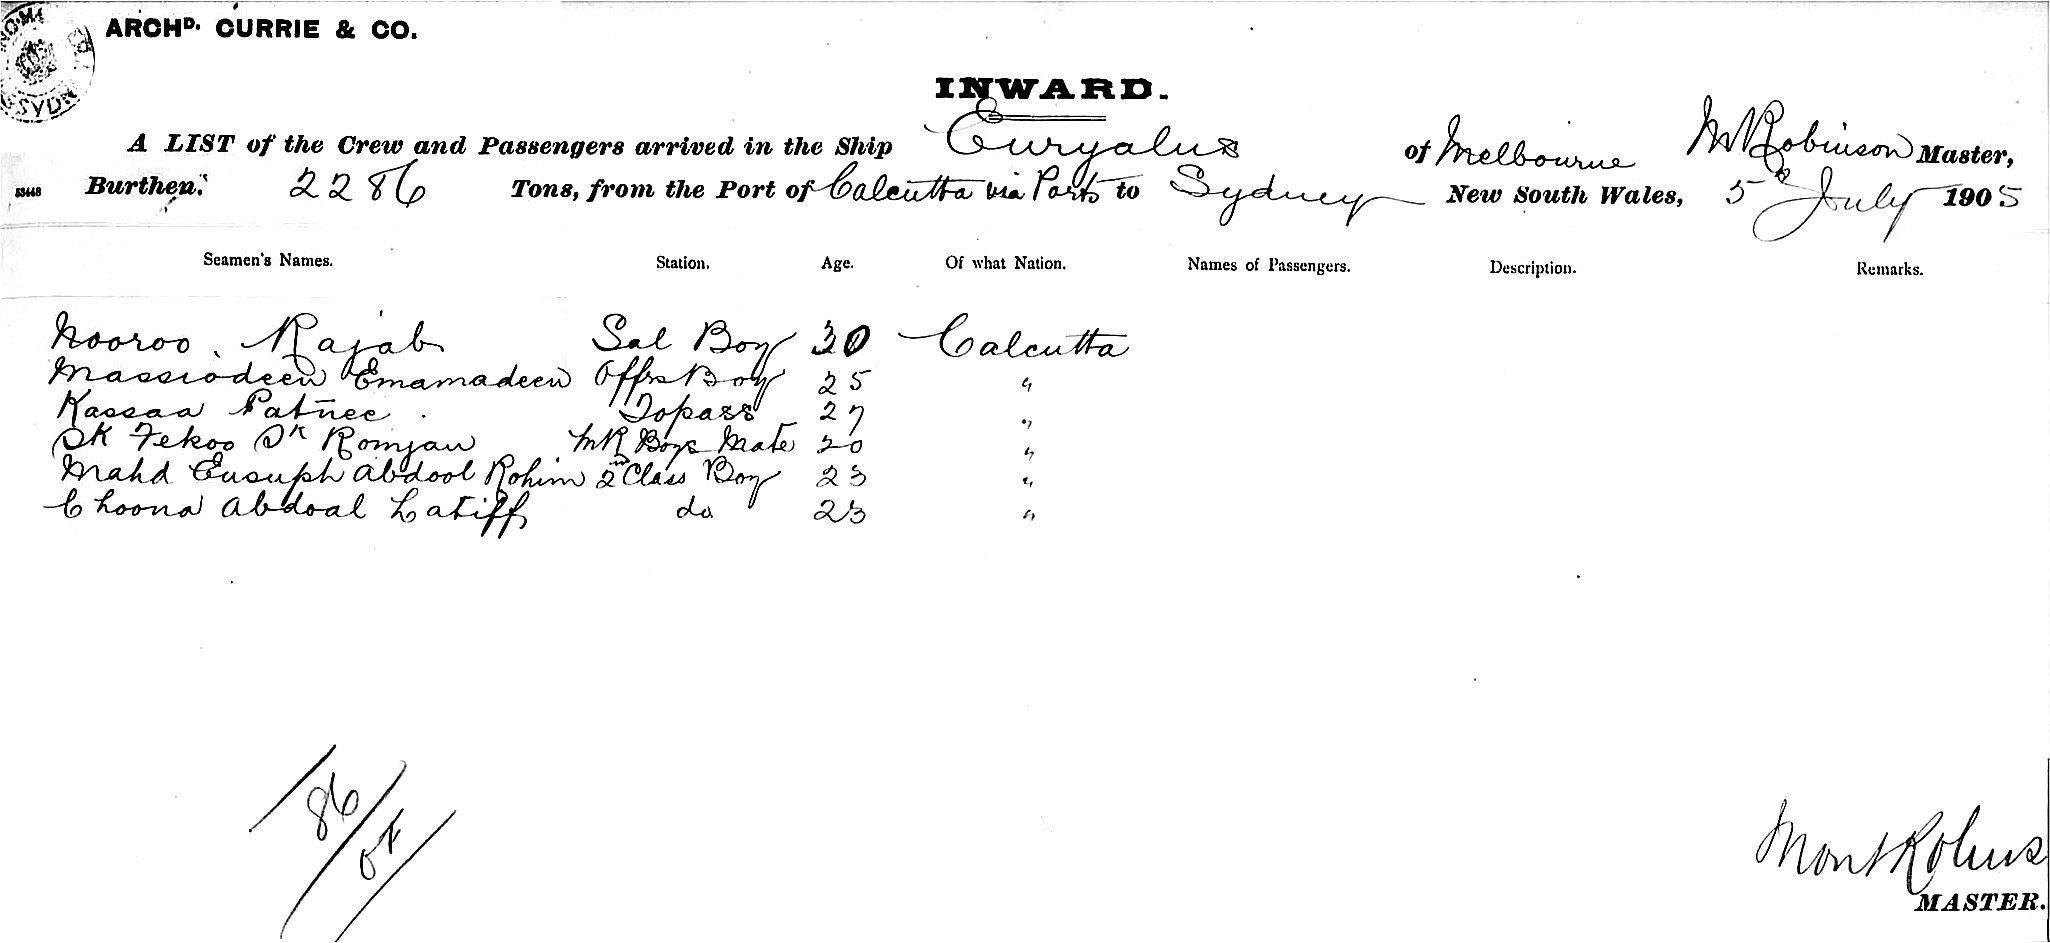 ARCHD. CURRIE & CO.
SYDN
INWARD.
A LIST of the Crew and Passengers arrived in the Ship Euryalus of Melbourne M Robinson Master,
53448 Burthen. 2286 Tons, from the Port of Calcutta via Ports to Sydney New South Wales, 5th July 1905
Seamen's Names. Station. Age. Of what Nation. Names of Passengers. Description. Remarks.
Nooroo. Rajab Sal Boy 30 Calcutta
Massiodeen Emamadeen Offrs Boy 25 "
Kassaa Patnee Topass 27 "
SK Fekoo Sk Romjan MR Boys Mate 20 "
Mahd Eusuph Abdool Rohim 2nd Class Boy 23 "
Choona Abdoal Latiff do 23 "
86
MASTER.